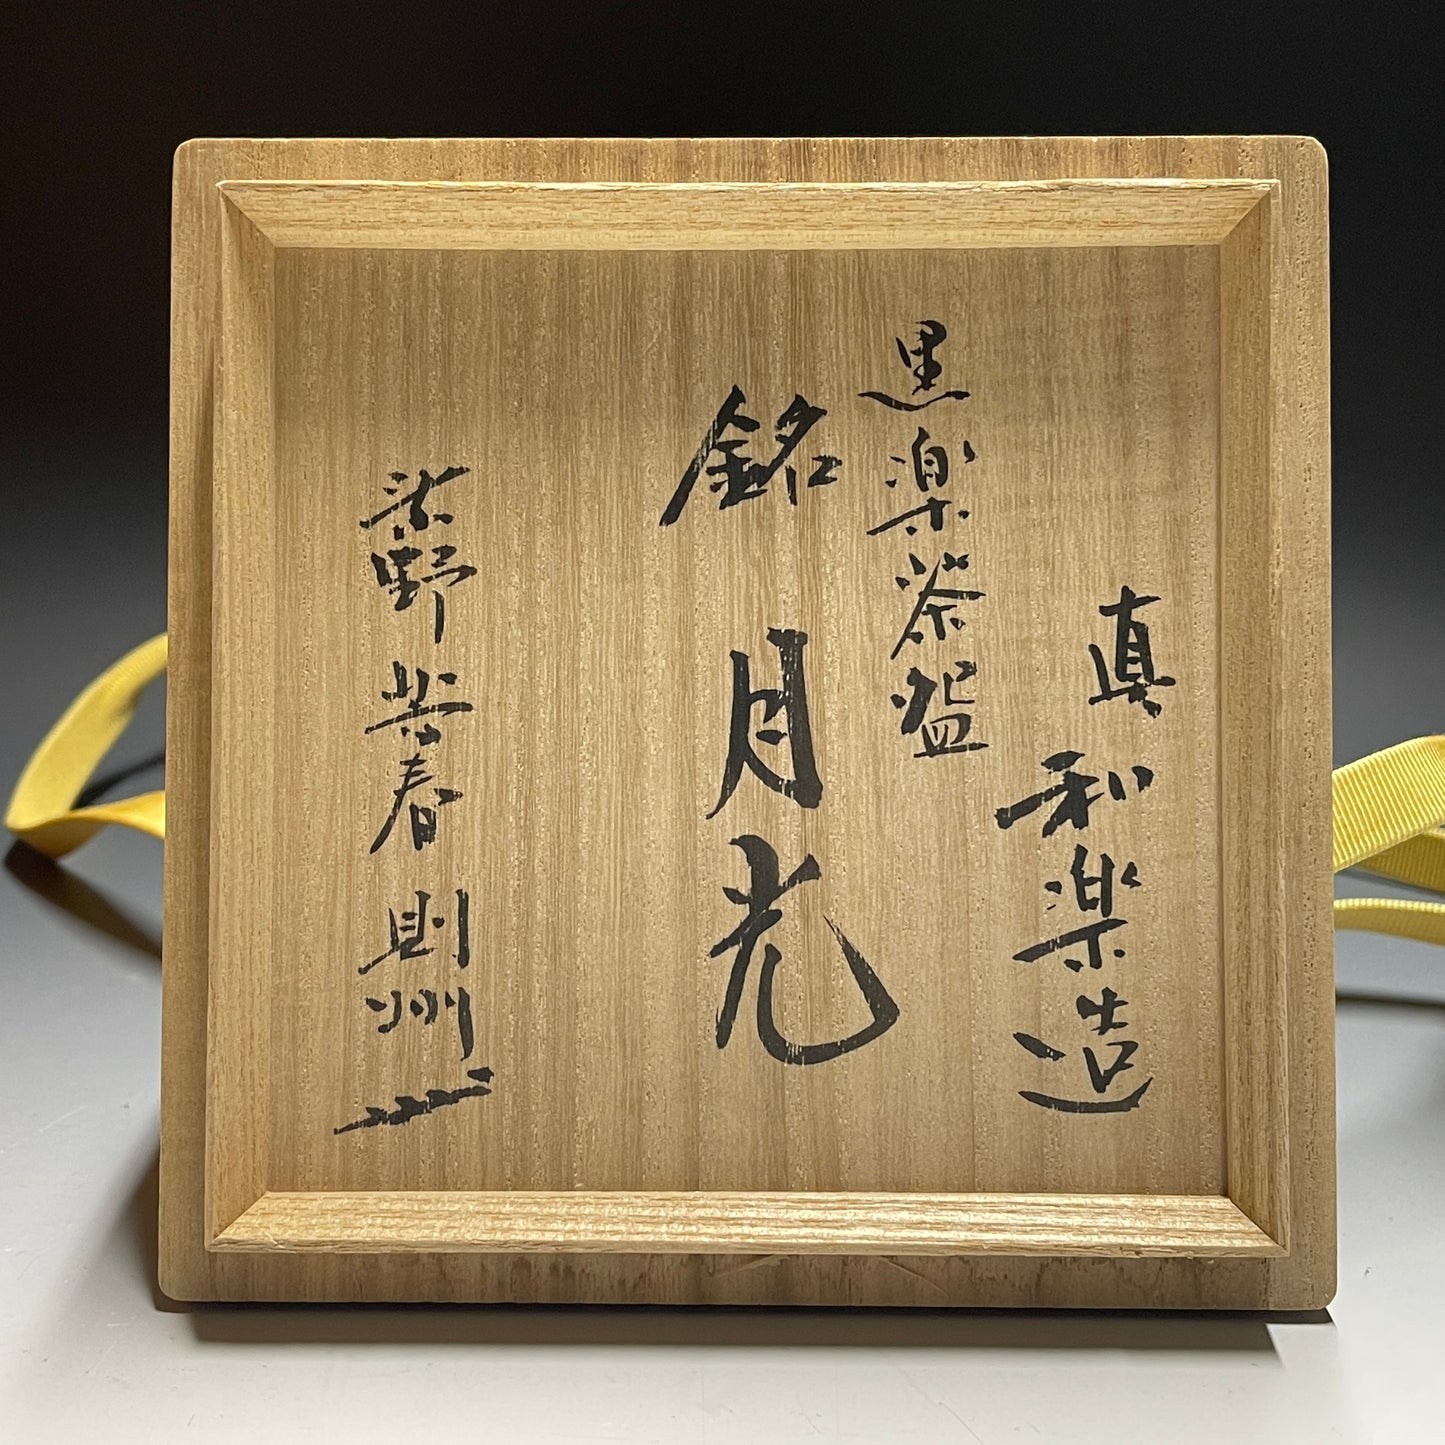 真
和楽造
黒楽茶碗
銘 月光
紫野 芳春 則州